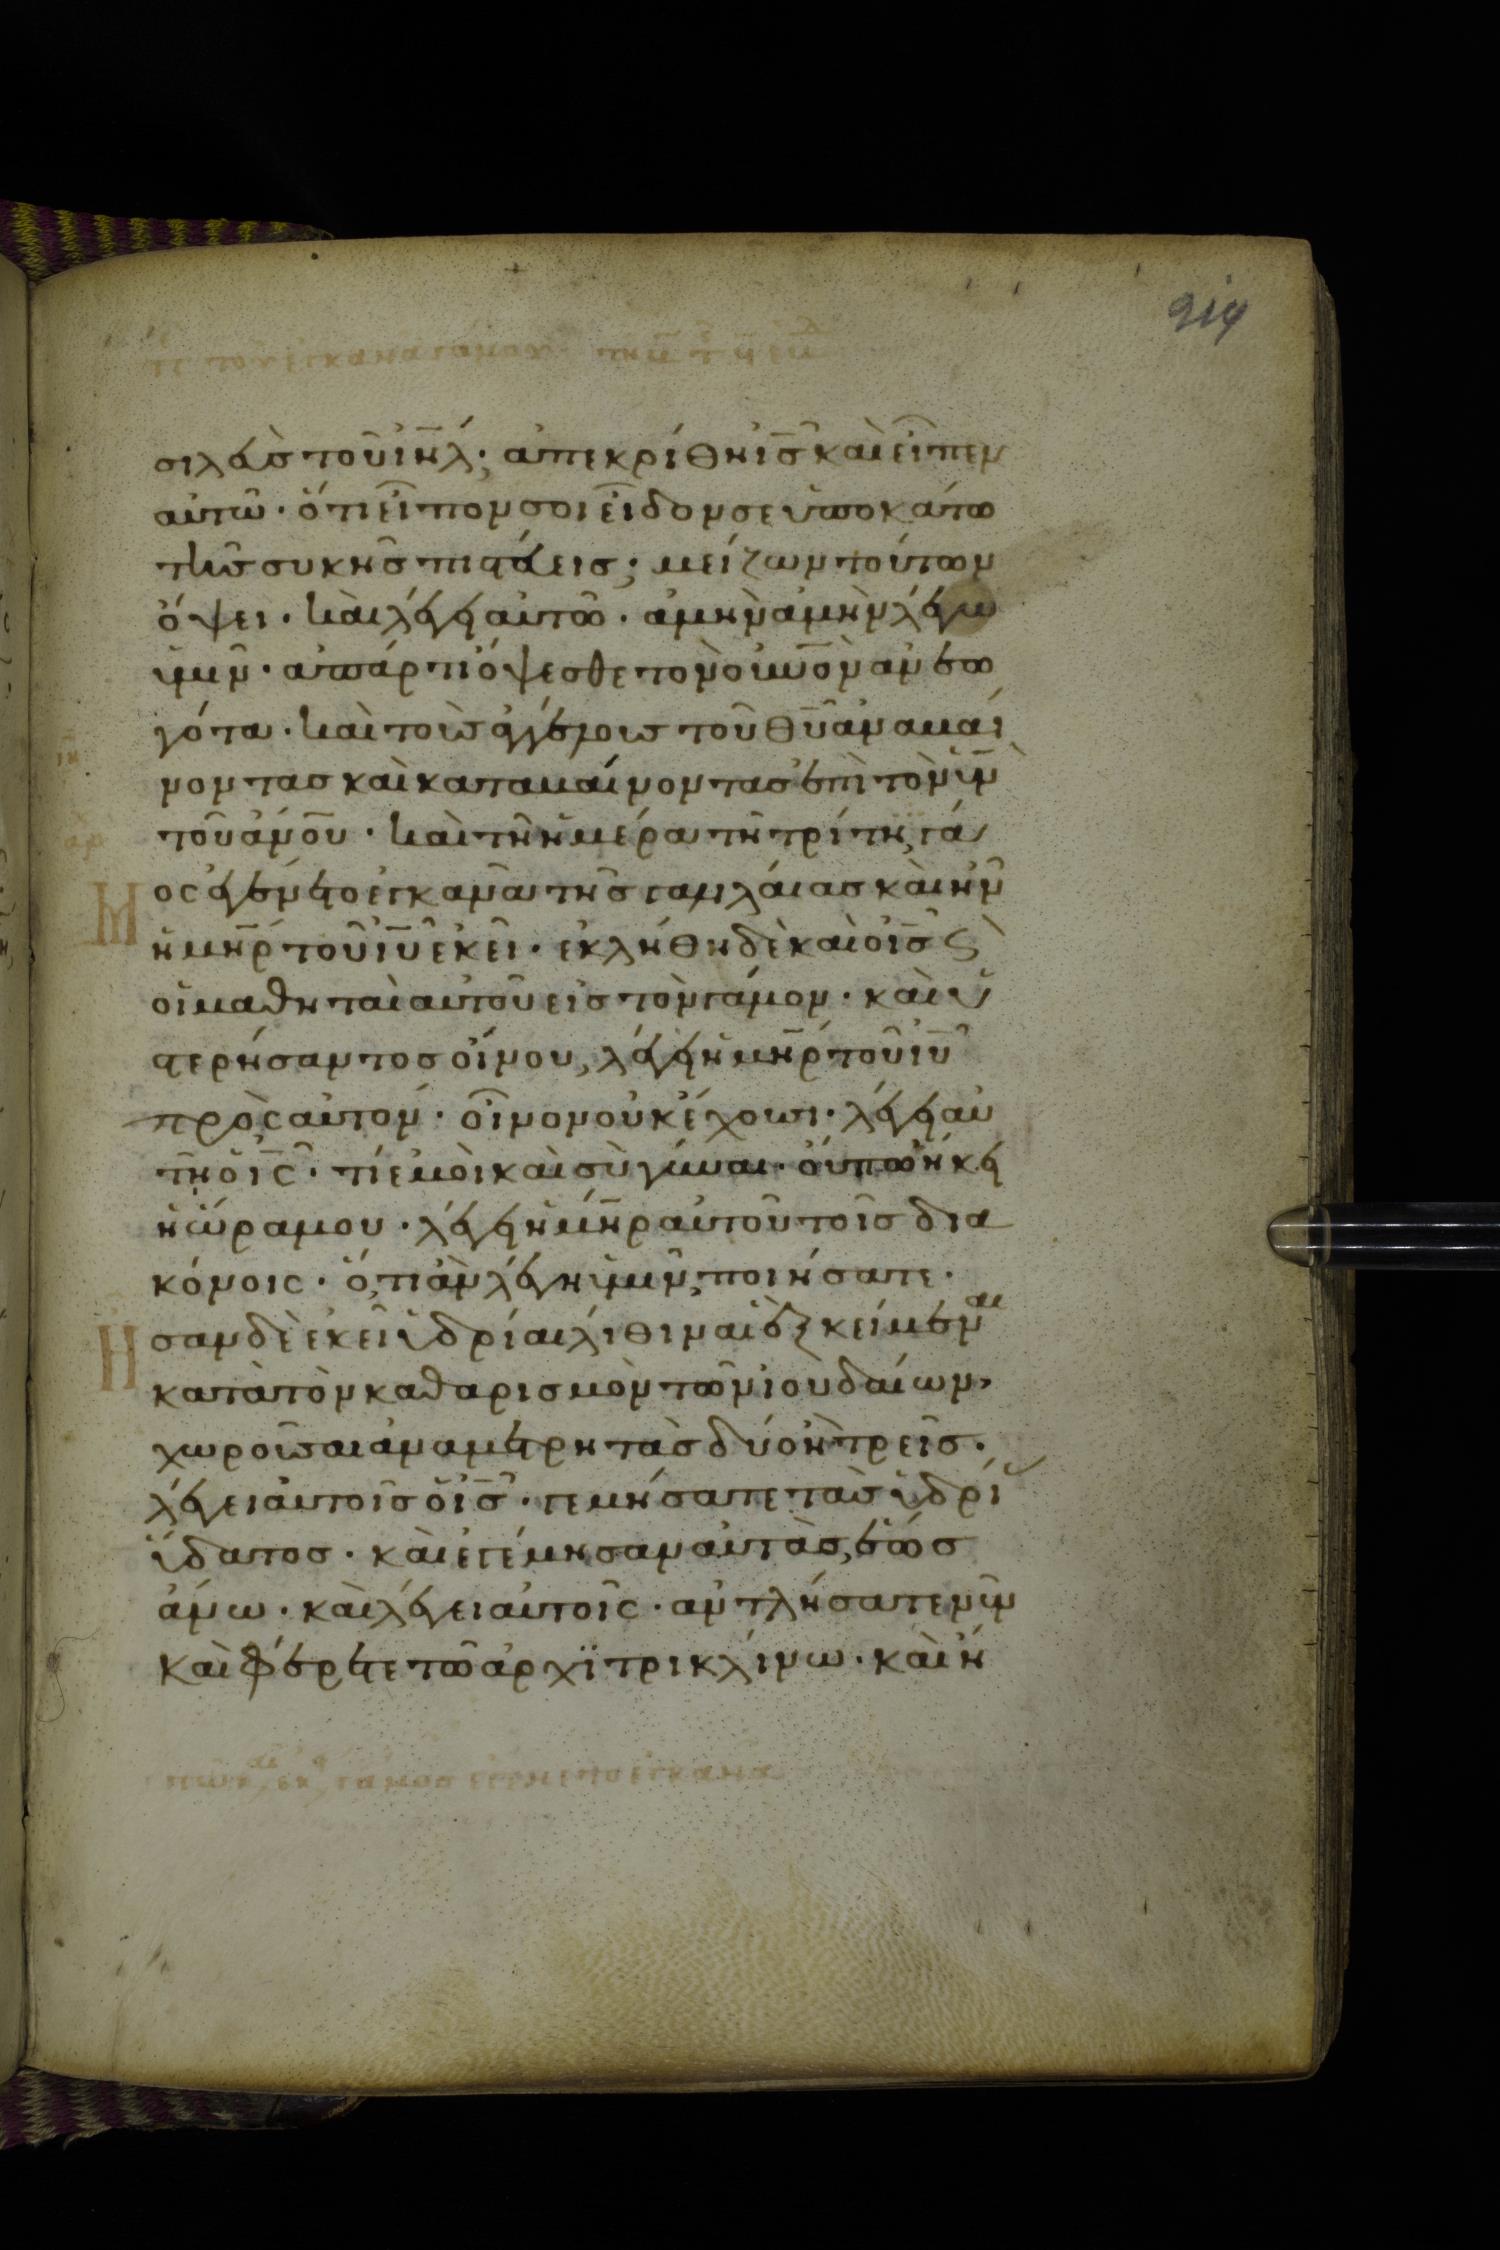 σιλεὺς τοῦ ἰηλ̅· ἀπεκρίθη ἰς̅ καὶ εἶπεν
αὐτῶ· ὅτι εἶπόν σοι εἶδόν σε ὑποκάτω
τῆς συκῆς πιστεύεις; μείζων τούτων
ὄψει· καὶ λέγει αὐτῶ· ἀμὴν ἀμὴν λέγω
ὑμῖν· ἀπάρτι ὄψεσθε τὸν οὐνὸν ἀνεω
γότα· καὶ τοὺς ἀγγέλους τοῦ θυ̅ ἀναβαί
νοντας καὶ καταβαίνοντας ἐπὶ τὸν υν̅
τοῦ ἀνου̅· καὶ τῆ ἡμέρα τῆ τρίτη, γά
ος ἐγένετο ἐν κανᾶ τῆς γαλιλαίας καὶ ἦν
ἡ μηρ̅ τοῦ ἰυ̅ ἐκεῖ· ἐκλήθη δὲ καὶ ὁ ις̅ ϗ
οἱ μαθηταὶ αὐτοῦ εἰς τὸν γάμον· καὶ ὑ
στερήσαντος οἴνου, λέγει ἡ μηρ̅ τοῦ ἰυ̅
πρὸς αὐτόν· οἶνον οὐκ ἔχουσι· λέγει αὐ
τῆ ὁ ις̅· τί ἐμοὶ καὶ σὺ γύναι· οὔπω ἥκει
ἡ ὥρα μου· λέγει ἡ μηρ̅ αὐτοῦ τοῖς δια
κόνοις· ὅ,τι ἂν λέγη ὑμῖν, ποιήσατε·
Ἦ
σαν δὲ ἐκεῖ ὑδρίαι λίθιναι ἓξ κείμεναι
κατὰ τὸν καθαρισμὸν τῶν ἰουδαίων,
χωροῦσαι ἀνὰ μετρητὰς δύο ἢ τρεῖς·
λέγει αὐτοῖς ὁ ις̅· γεμίσατε τὰς ὑδρί
ὕδατος· καὶ ἐγέμησαν αὐτὰς, ἕως
ἄνω· καὶ λέγει αὐτοῖς· ἀντλήσατε νῦν
καὶ φέρετε τῶ ἀρχϊτρικλίνω· καὶ ἤ